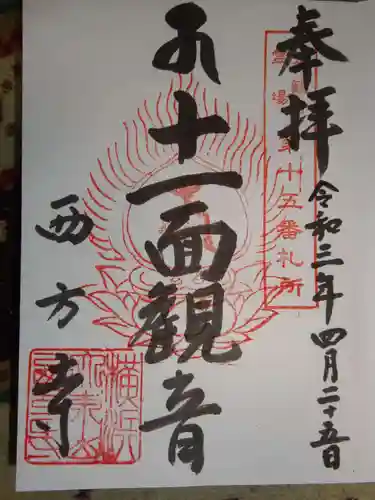 奉拝
令和三年四月二十五日
第十五番札所
十一面観音
西方寺
横浜